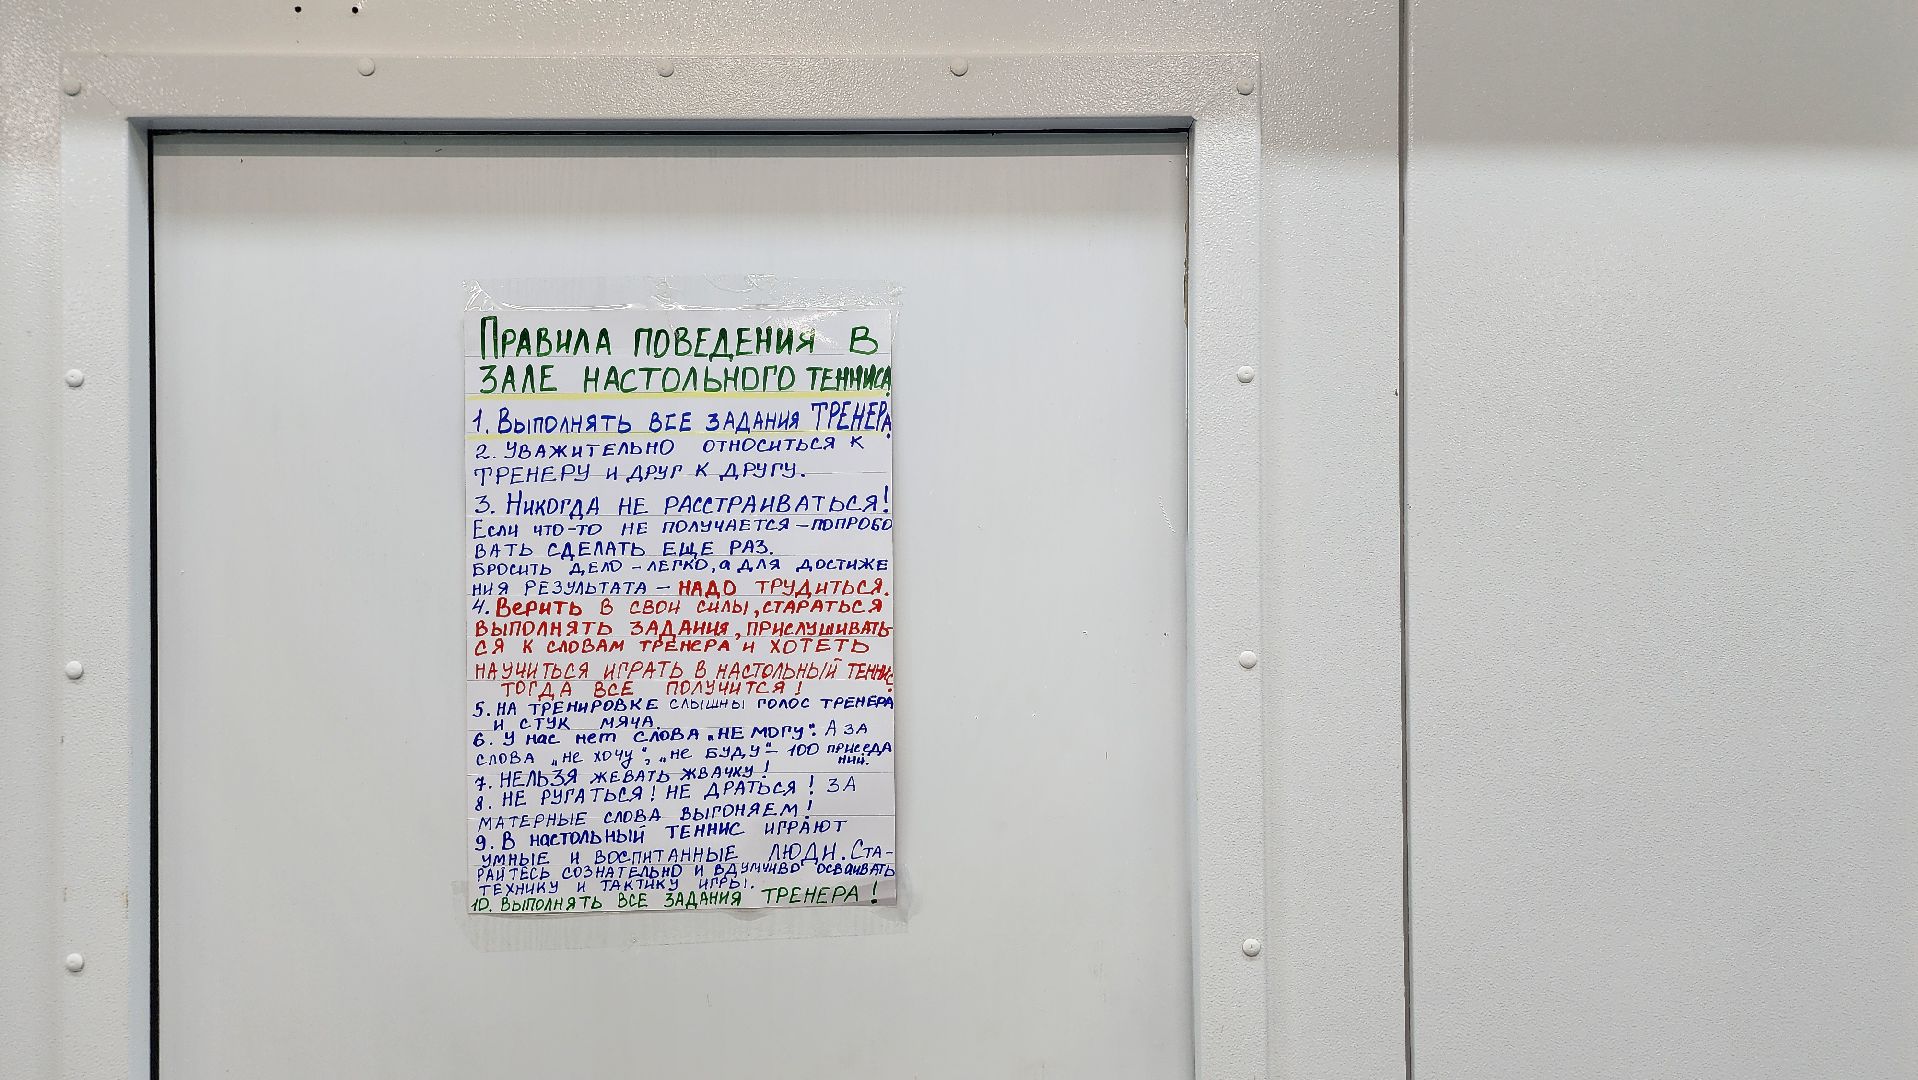 Правила поведения в
зале настольного тенниса
1. Выполнять все задания ТРЕНЕРА
2. Уважительно относиться к
тренеру и друг к другу.
3. Никогда не расстраиваться!
Если что-то не получается – попробо
вать сделать еще раз.
Бросить дело – легко, а для достиже
ния результата – надо трудиться.
4. Верить в свои силы, стараться
выполнять задания, прислушивать-
ся к словам тренера и хотеть
научиться играть в настольный теннис
тогда все получится!
5. На тренировке слышны голос тренера
и стук мяча.
6. У нас нет слова „не могу". А за
слова „не хочу", „не буду" – 100 приседа
ний.
7. Нельзя жевать жвачку!
8. Не ругаться! Не драться! За
матерные слова выгоняем!
9. В настольный теннис играют
умные и воспитанные люди. Ста-
райтесь сознательно и вдумчиво осваивать
технику и тактику игры.
10. Выполнять все задания ТРЕНЕРА!